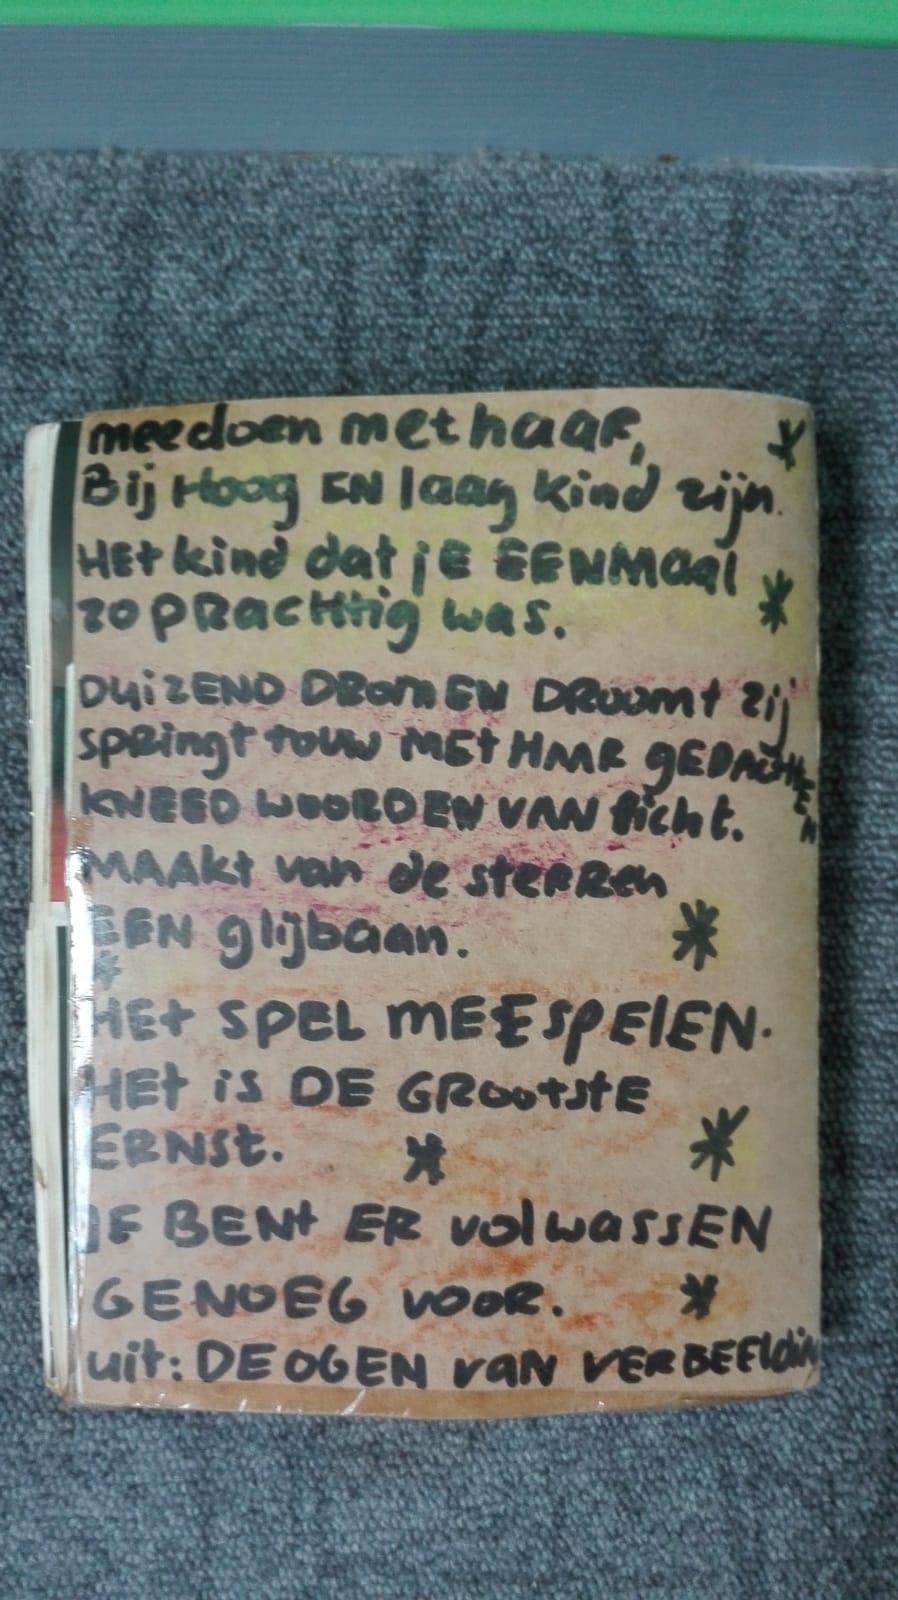 meedoen met haar,
Bij Hoog EN laag kind zijn.
HEt kind dat jE EENMaal
zo pRacHtig was.
DuizEND DRomEN DRoomt zij
springt touw MEt HAAR gEDAcHtEN
KNEED WOORDEN VAN licht.
MAAkt van de sterren
EEN glijbaan.
HEt SPEL MEEspElEN.
HEt is DE GRootstE
ERNst.
JE BENt ER volwassEN
GENOEG VOOR.
uit: DE OGEN VAN VERBEEldin